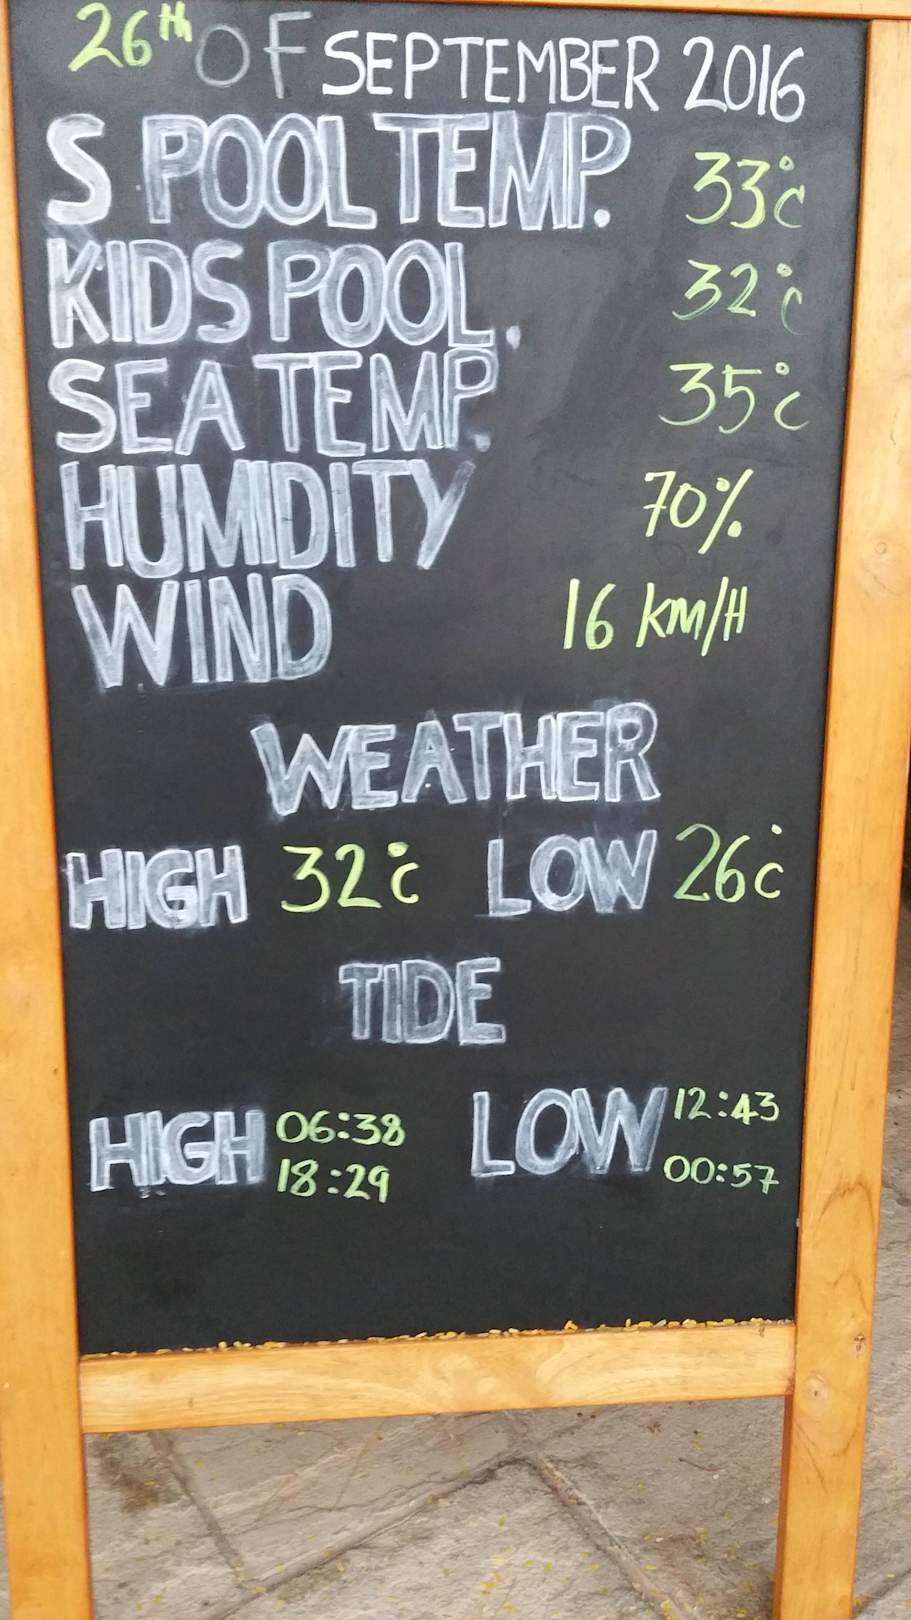 26th OF SEPTEMBER 2016
S POOL TEMP. 33°C
KIDS POOL. 32°C
SEA TEMP. 35°C
HUMIDITY 70%
WIND 16 KM/H
WEATHER
HIGH 32°C LOW 26°C
TIDE
HIGH 06:38 LOW 12:43
18:29 00:57